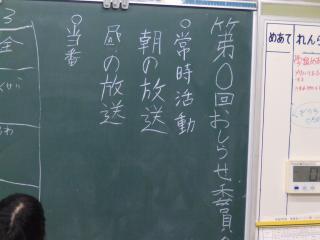 めあて
れんら
第〇回おしらせ委員会
〇常時活動
朝の放送
昼の放送
〇当番
3
全